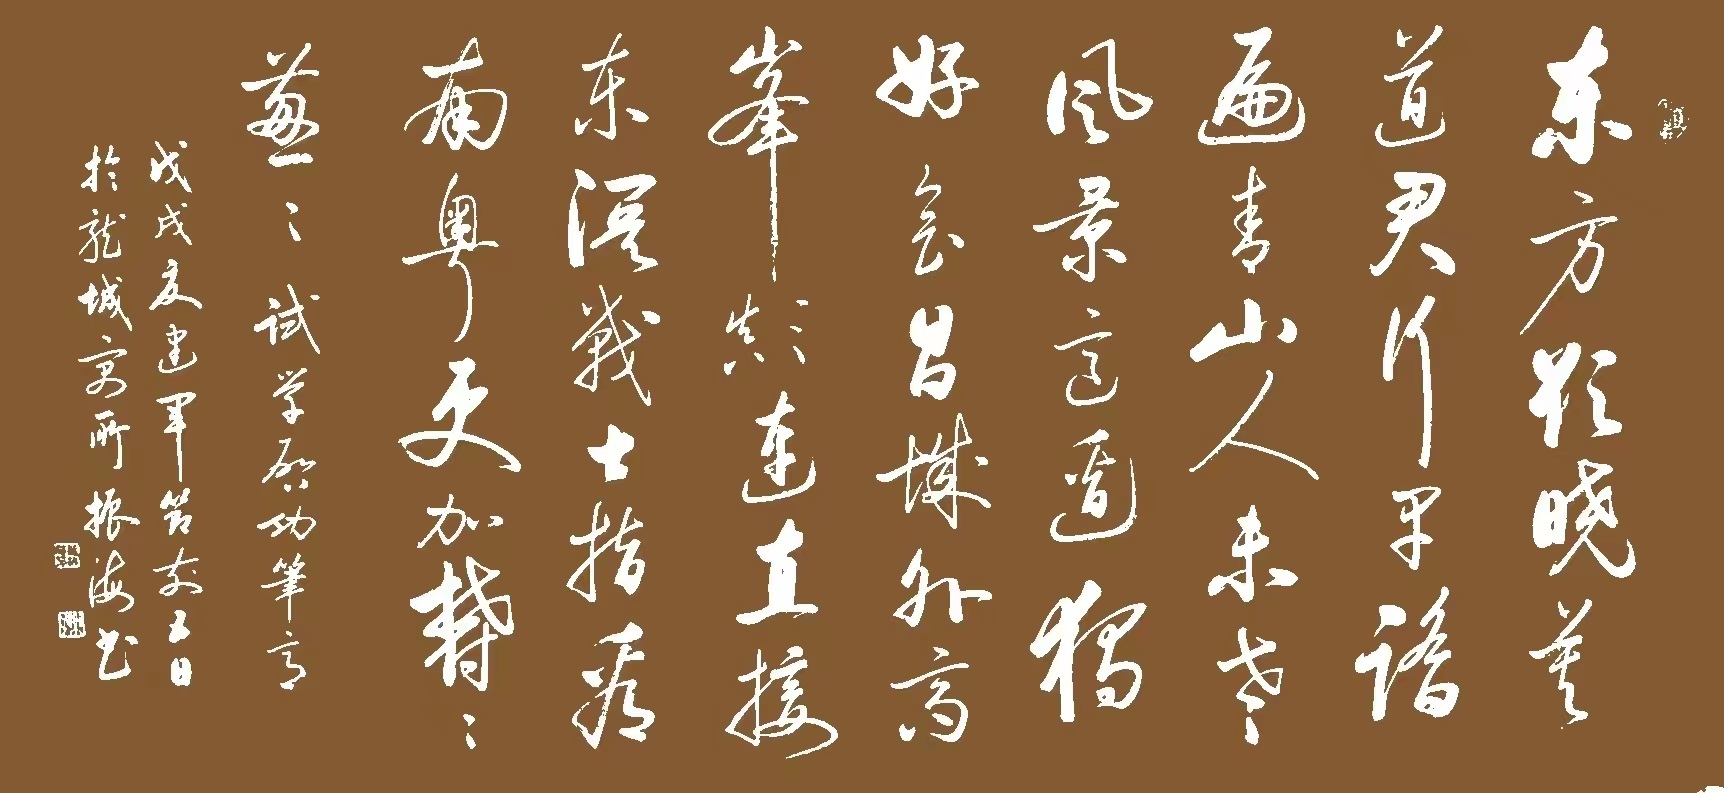 东方欲晓莫
道君行早踏
遍青山人未老
风景这边独
好会昌城外高
峰颠连直接
东溟战士指看
南粤更加郁
葱试学启功笔意
戊戌夏建军节前五日
於龙城寓所振海书